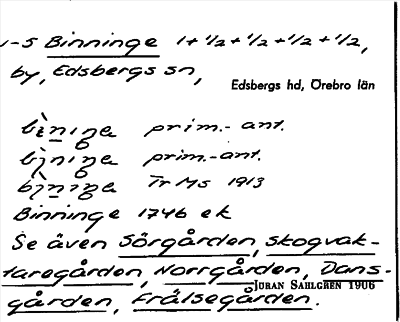 1-5 Binninge 1+1/2+1/2+1/2+1/2,
by, Edsbergs sn,
Edsbergs hd, Örebro län
prim.- ant.
prim.-ant.
Tr Ms 1913
Binninge 1746 ek
Se även Sörgården, Skogvak-
taregården, Norrgården, Dans-
JÖRAN SAHLGREN 1906
gården, Frälsegården.